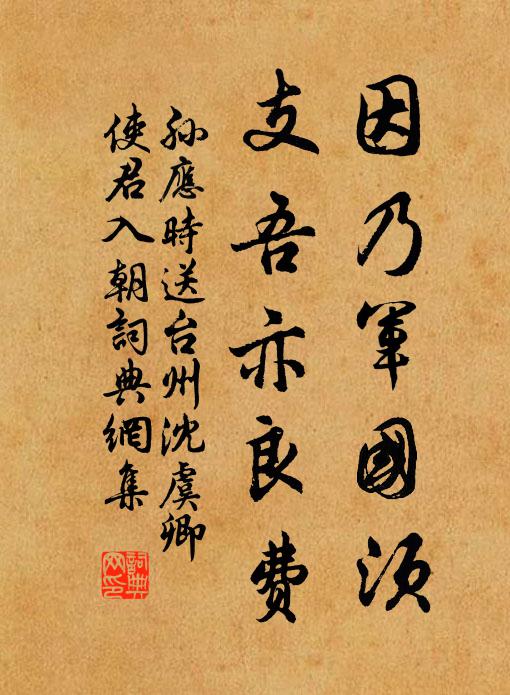 因乃軍國須
支吾亦良費
孫應時送台州沈虞卿
使君入朝詞典網集
詞典網印